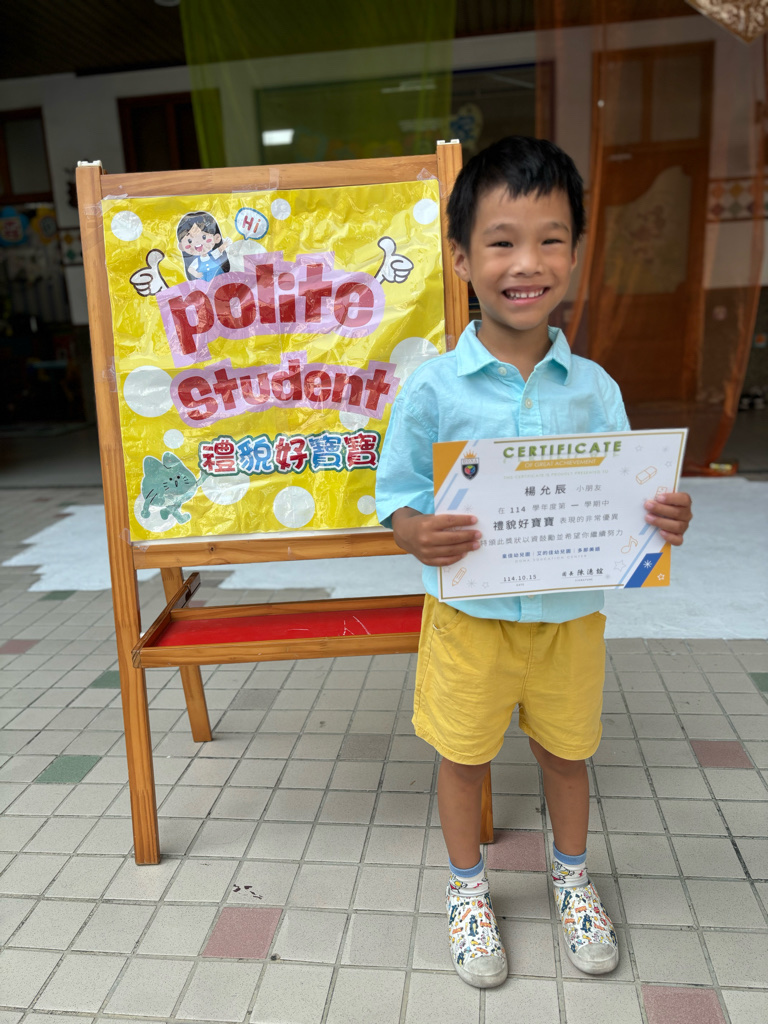 Hi
polite
student
禮貌好寶寶
CERTIFICATE
OF GREAT ACHIEVEMENT
THE CERTIFICATE IS PROUDLY PRESENTED TO
楊允辰 小朋友
在 114 學年度第 一 學期中
禮貌好寶寶 表現的非常優異
特頒此獎狀以資鼓勵並希望你繼續努力
114.10.15